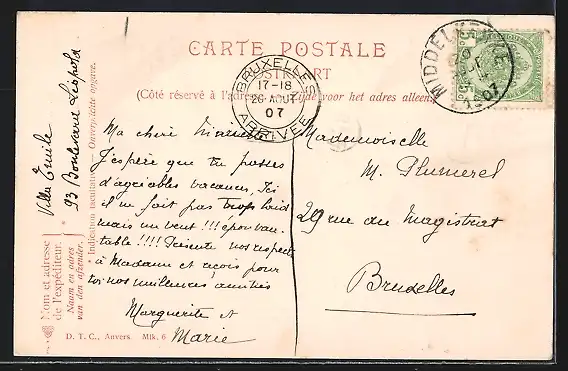 CARTE POSTALE
POSTKAART
(Côté réservé à l'adresse. Zijde voor het adres alleen)
BRUXELLES
17-18
26 AOUT
07
ARRIVEE
MIDDELKERKE
07
Ma chère
J'espère que tu passes
d'agréables vacances, Ici
il ne fait pas trop froid
mais un vent !!! épouvan-
table !!!! Présente nos respects
à Madame et reçois pour
toi nos meilleures amitiés
Marguerite et
Marie
Mademoiselle
M. Plumerel
29 rue du Magistrat
Bruxelles
Villa Emile
93 Boulevard Léopold
Indication facultative - Onverplichte opgave.
Nom et adresse
de l'expéditeur.
Naam en adres
van den afzender.
D. T. C., Anvers. Mlk. 6